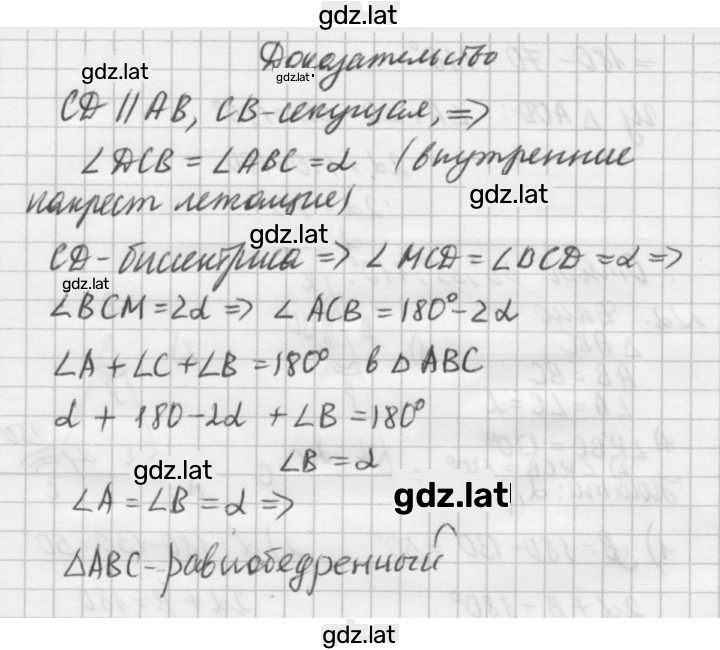 gdz.lat
Доказательство
gdz.lat
gdz.lat
CD || AB, CB-секущая, =>
∠DCB = ∠ABC = α (внутренние
накрест лежащие)
gdz.lat
gdz.lat
CD - биссектриса => ∠MCD = ∠BCD = α =>
gdz.lat
∠BCM = 2α => ∠ACB = 180° - 2α
∠A + ∠C + ∠B = 180° в △ABC
α + 180 - 2α + ∠B = 180°
∠B = α
gdz.lat
∠A = ∠B = α =>
gdz.lat
△ABC - равнобедренный
gdz.lat